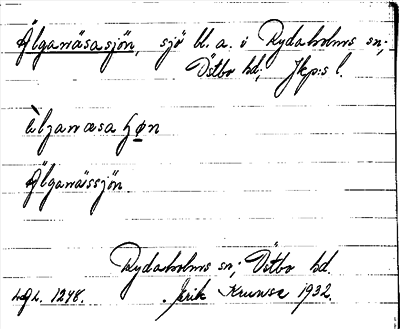 Älganäsasjön, sjö bl. a. i Rydaholms sn.
Östbo hd; Jkp:s l.
Älganässjön.
Rydaholms sn; Östbo hd.
1248. Erik 1932.